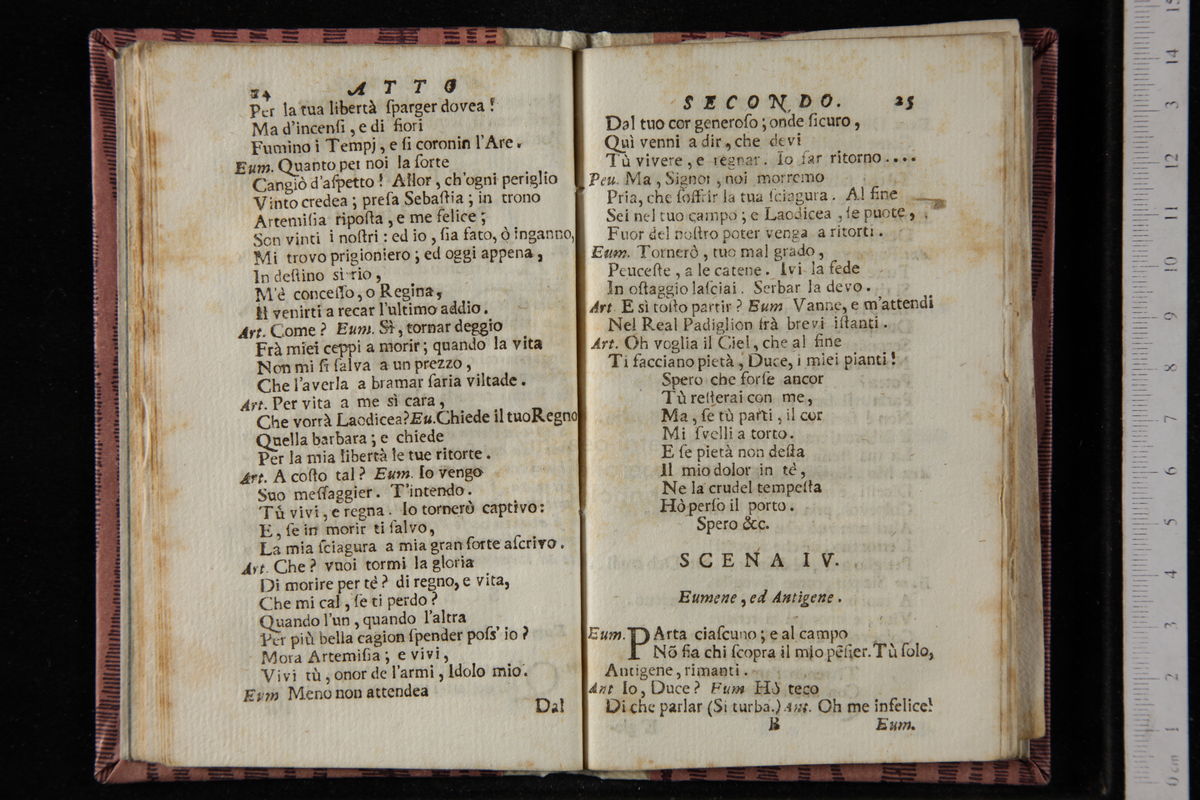 24 ATTO
Per la tua libertà ſparger dovea!
Ma d'incenſi, e di fiori
Fumino i Tempj, e ſi coronin l'Are.
Eum. Quanto per noi la ſorte
Cangiò d'aſpetto! Allor, ch'ogni periglio
Vinto credea; preſa Sebaſtia; in trono
Artemiſia ripoſta, e me felice;
Son vinti i noſtri: ed io, ſia fato, ò inganno,
Mi trovo prigioniero; ed oggi appena,
In deſtino sì rio,
M'è conceſſo, o Regina,
Il venirti a recar l'ultimo addio.
Art. Come? Eum. Sì, tornar deggio
Frà miei ceppi a morir; quando la vita
Non mi ſi ſalva a un prezzo,
Che l'averla a bramar ſaria viltade.
Art. Per vita a me sì cara,
Che vorrà Laodicea? Eu. Chiede il tuo Regno
Quella barbara; e chiede
Per la mia libertà le tue ritorte.
Art. A coſto tal? Eum. Io vengo
Suo meſſaggier. T'intendo.
Tù vivi, e regna. Io tornerò captivo:
E, ſe in morir ti ſalvo,
La mia ſciagura a mia gran ſorte aſcrivo.
Art. Che? vuoi tormi la gloria
Di morire per tè? di regno, e vita,
Che mi cal, ſe ti perdo?
Quando l'un, quando l'altra
Per più bella cagion ſpender poſs' io?
Mora Artemiſia; e vivi,
Vivi tù, onor de l'armi, Idolo mio.
Eum Meno non attendea
Dal
SECONDO. 25
Dal tuo cor generoſo; onde ſicuro,
Quì venni a dir, che devi
Tù vivere, e regnar. Io far ritorno....
Peu. Ma, Signor, noi morremo
Pria, che ſoffrir la tua ſciagura. Al fine
Sei nel tuo campo; e Laodicea, ſe puote,
Fuor del noſtro poter venga a ritorti.
Eum. Tornerò, tuo mal grado,
Peuceſte, a le catene. Ivi la fede
In oſtaggio laſciai. Serbar la devo.
Art E sì toſto partir? Eum Vanne, e m'attendi
Nel Real Padiglion frà brevi iſtanti.
Art. Oh voglia il Ciel, che al fine
Ti facciano pietà, Duce, i miei pianti!
Spero che forſe ancor
Tù reſterai con me,
Ma, ſe tù parti, il cor
Mi ſvelli a torto.
E ſe pietà non deſta
Il mio dolor in tè,
Ne la crudel tempeſta
Hò perſo il porto.
Spero &c.
SCENA IV.
Eumene, ed Antigene.
Eum. PArta ciaſcuno; e al campo
Nõ ſia chi ſcopra il mio pẽſier. Tù ſolo,
Antigene, rimanti.
Ant Io, Duce? Eum Hò teco
Di che parlar (Si turba.) Ant. Oh me infelice!
B Eum.